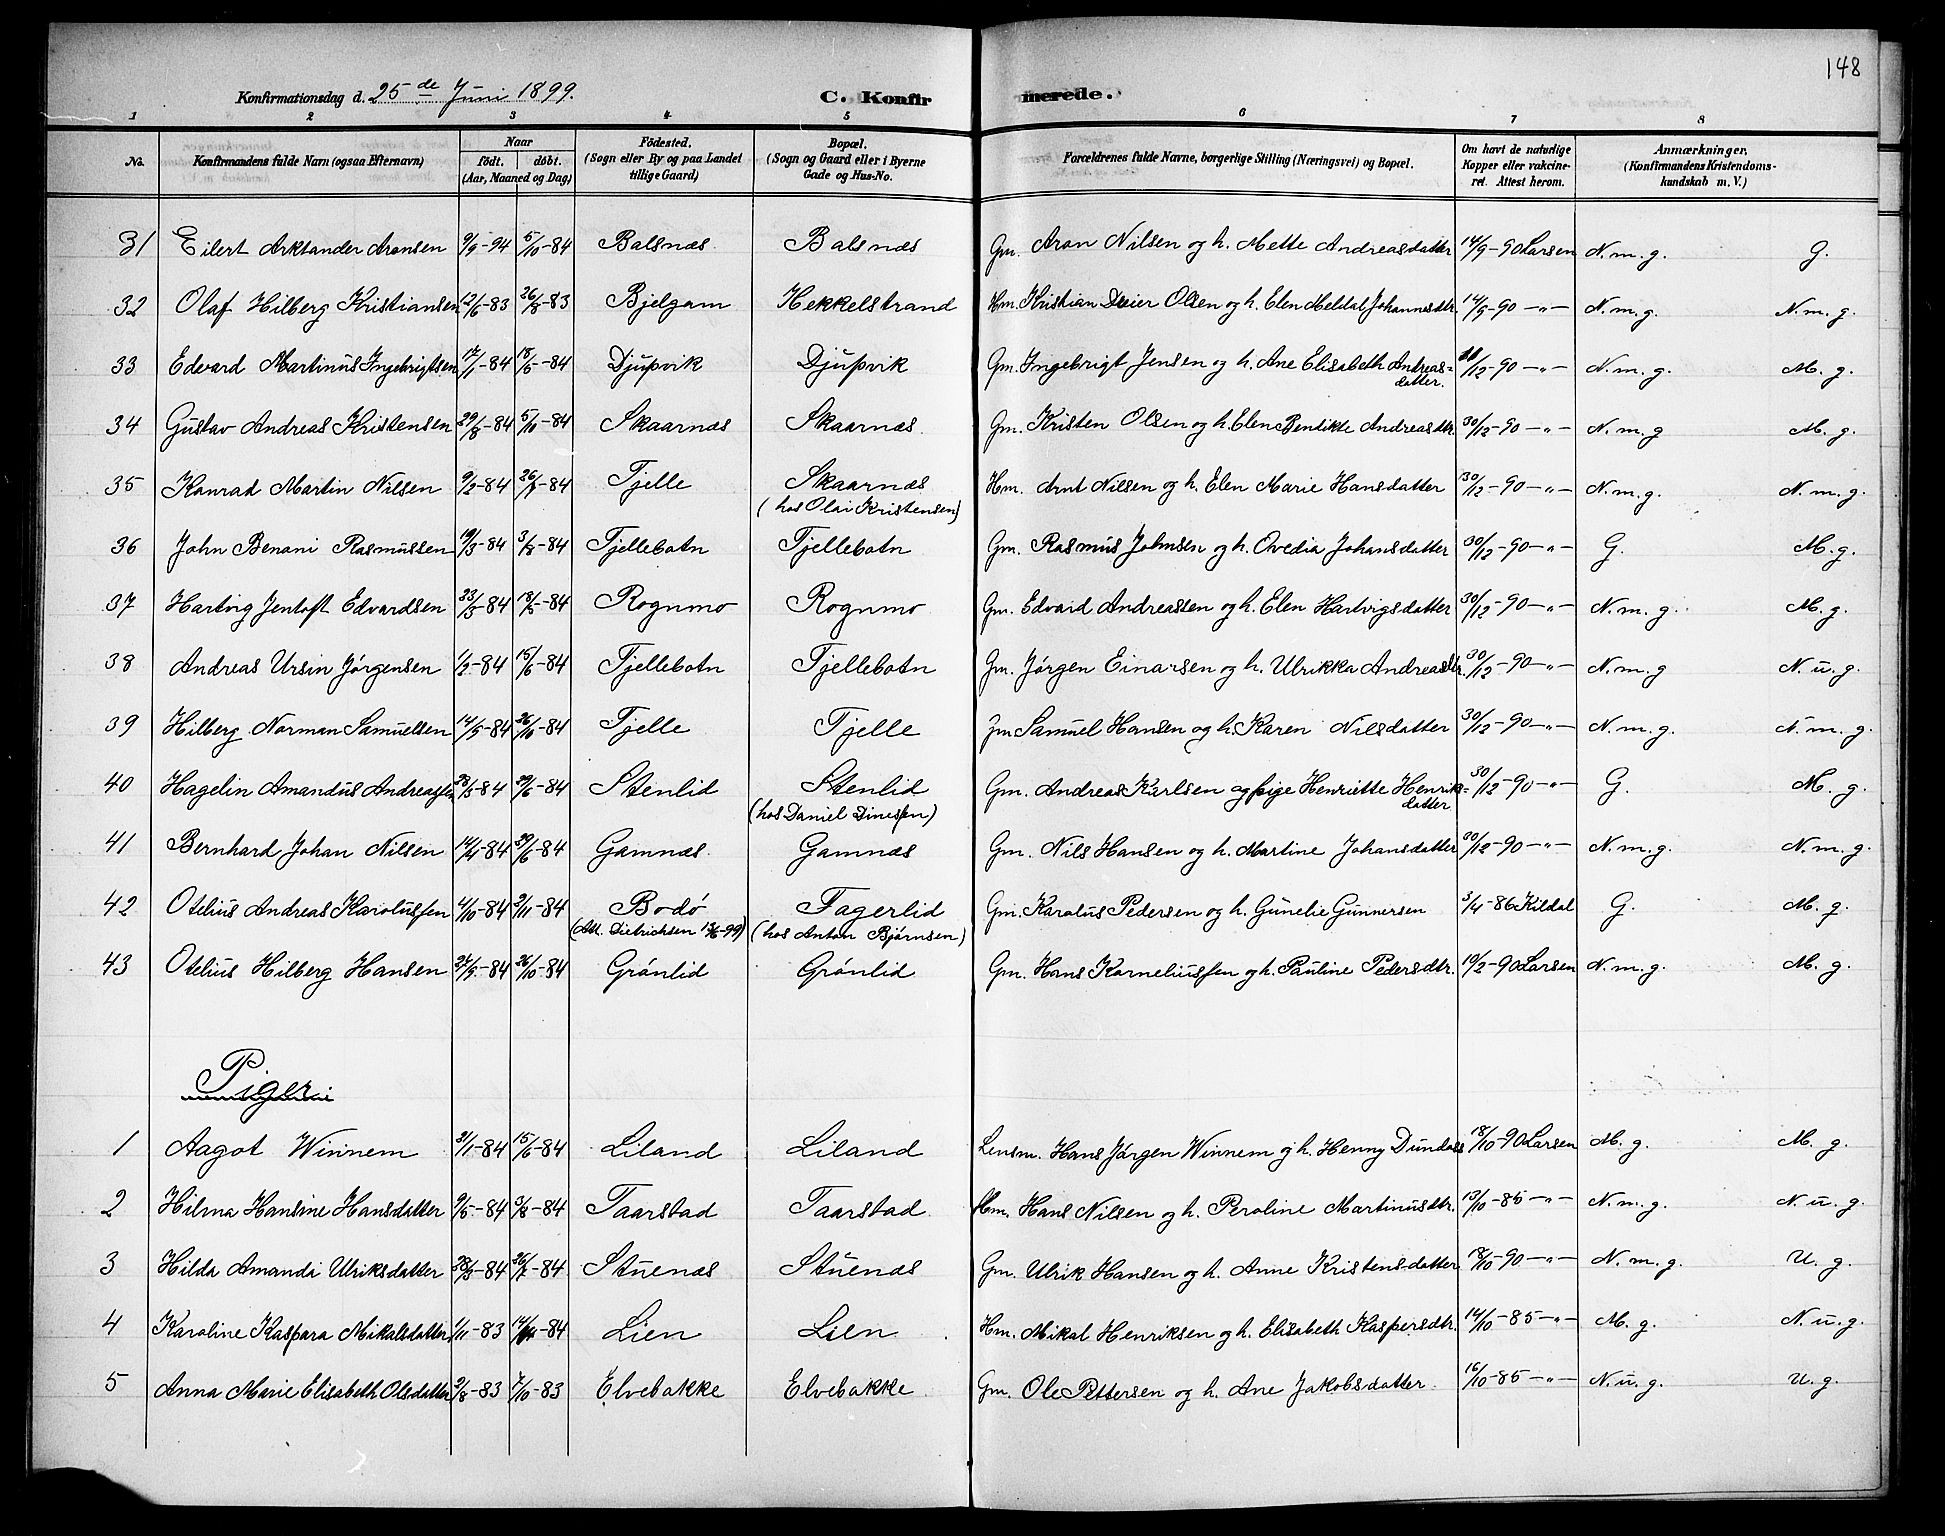 148
Konfirmationsdag d. 25de Juni 1899. C. Konfirmerede.
1 2 3 4 5 6 7 8
No. Konfirmandens fulde Navn (ogsaa Efternavn) Naar født. døbt. (Aar, Maaned og Dag) Fødested. (Sogn eller By og paa Landet tillige Gaard) Bopæl. (Sogn og Gaard eller i Byerne Gade og Hus-No. Forældrenes fulde Navne, borgerlige Stilling (Næringsvei) og Bopæl. Om havt de naturlige Kopper eller vakcineret. Attest herom. Anmærkninger. (Konfirmandens Kristendomskundskab m. V.)
31 Eilert Arktander Aronsen 9/9-94 5/10-84 Balsnæs Balsnæs Gm. Aron Nilsen og h. Mette Andreasdatter 14/9-90 Larsen N. m. g. G.
32 Olaf Hilberg Kristiansen 12/6-83 26/8-83 Bjelgam Hekkelstrand Hm. Kristian Dreier Olsen og h. Elen Meldal Johannesdtr. 14/9-90 -"- N. m. g. N. m. g.
33 Edvard Martinus Ingebrigtsen 17/1-84 18/5-84 Djupvik Djupvik Gm. Ingebrigt Jensen og h. Ane Elisabeth Andreas=
datter. /12-90 -"- N. m. g. M. g.
34 Gustav Andreas Kristensen 29/8-84 5/10-84 Skaarnæs Skaarnæs. Gm. Kristen Olsen og h. Elen Bendikte Andreasdtr. 30/12-90 -"- N. m. g M. g.
35 Konrad Martin Nilsen 9/2-84 26/7-84 Tjelle Skaarnæs Hm. Arnt Nilsen og h. Elen Marie Hansdatter 30/12-90 -"- N. m. g. N. m. g.
(hos Olai Kristensen)
36 John Benoni Rasmussen 19/3-84 3/8-84 Tjellebotn Tjellebotn Gm. Rasmus Johnsen og h. Ovedia Johansdatter 30/12-90 -"- G. M. g.
37 Hartvig Jentoft Edvardsen 23/3-84 18/5-84 Rognmo Rognmo Gm. Edvard Andreassen og h. Elen Hartvigsdatter 30/12-90 -"- N. m. g. M. g.
38 Andreas Ursin Jørgensen 1/2-84 15/6-84 Tjellebotn Tjellebotn Gm. Jørgen Einarsen og h. Ulrikka Andreasdtr. 30/12-90 -"- N. m. g N. u. g.
39 Hilberg Norman Samuelsen 14/9-84 26/10-84 Tjelle Tjelle Samuel Hansen og h. Karen Nilsdatter 30/12-90 -"- N. m. g. N. m. g.
40 Hagelin Amandus Andreassen 28/3-84 29/6-84 Stenlid Stenlid Gm. Andreas Karlsen og pige Henriette Henrik=
datter 30/12-90 -"- G. M. g.
(hos Daniel Dinessen)
41 Bernhard Johan Nilsen 14/4-84 29/6-84 Gamnæs. Gamnæs Gm. Nils Hansen og h. Martine Johansdatter 30/12-90 -"- N. m. g. N. m. g.
42 Otelius Andreas Karolussen 4/10-84 9/11-84 Bodø Fagerlid Gm. Karolus Pedersen og h. Gunelie Gunnersen 3/4-86 Kildal G. M. g.
(Att. Dietrichsen 13/6-99) (hos Anton Bjørnsen)
43 Otelius Hilberg Hansen 27/9-84 26/10-84 Grønlid Grønlid Gm. Hans Korneliussen og h. Pauline Pedersdtr. 19/2-90 Larsen N. m. g. M. g.
Piger
1 Aagot Winnem 31/1-84 15/6-84 Liland Liland Lensm. Hans Jørgen Winnem og h. Henny Dundass 18/10-90 Larsen M. g. M. g.
2 Hilma Hansine Hansdatter 9/5-84 3/8-84 Taarstad Taarstad Hm. Hans Nilsen og h. Peroline Martinusdtr. 13/10-85 -"- N. m. g. N. u. g.
3 Hilda Amanda Ulriksdatter 28/3-84 26/7-84 Stuenæs Stuenæs Gm. Ulrik Hansen og h. Anne Kristensdatter 18/10-90 -"- N. m. g. U. g.
4 Karoline Kaspara Mikalsdatter 1/11-83 -84 Lien Lien Hm. Mikal Henriksen og h. Elisabeth Kaspersdtr. 14/10-85 -"- M. g. N. u. g.
5 Anna Marie Elisabeth Olsdatter 9/8-83 7/10-83 Elvebakke Elvebakke Gm. Ole Pettersen og h. Ane Jakobsdatter. 16/10-85 -"- N. u. g. U. g.